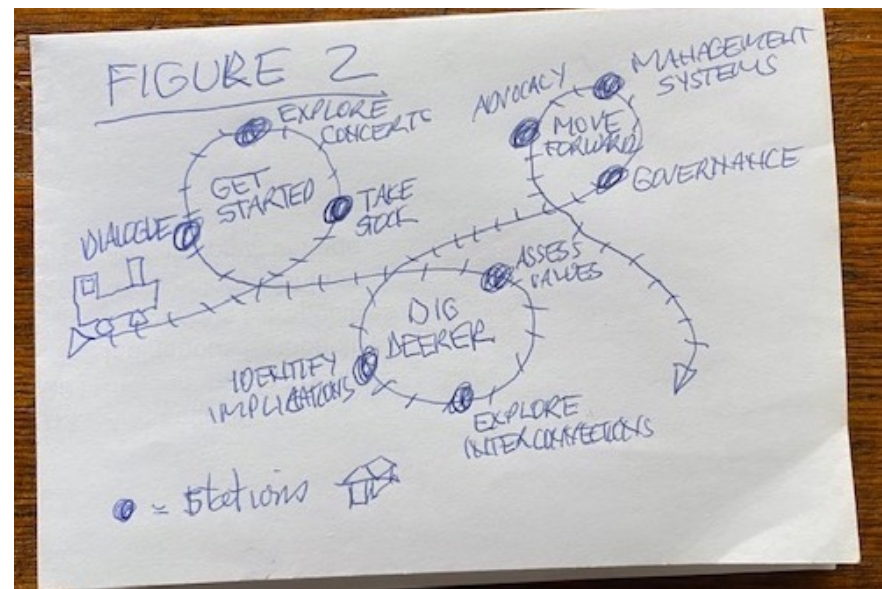 FIGURE 2
EXPLORE
CONCEPTS
GET
STARTED
TAKE
STOCK
DIALOGUE
ADVOCACY
MANAGEMENT
SYSTEMS
MOVE
FORWARD
GOVERNANCE
ASSESS
VALUES
DIG
DEEPER
IDENTIFY
IMPLICATIONS
EXPLORE
INTERCONNECTIONS
= Stations